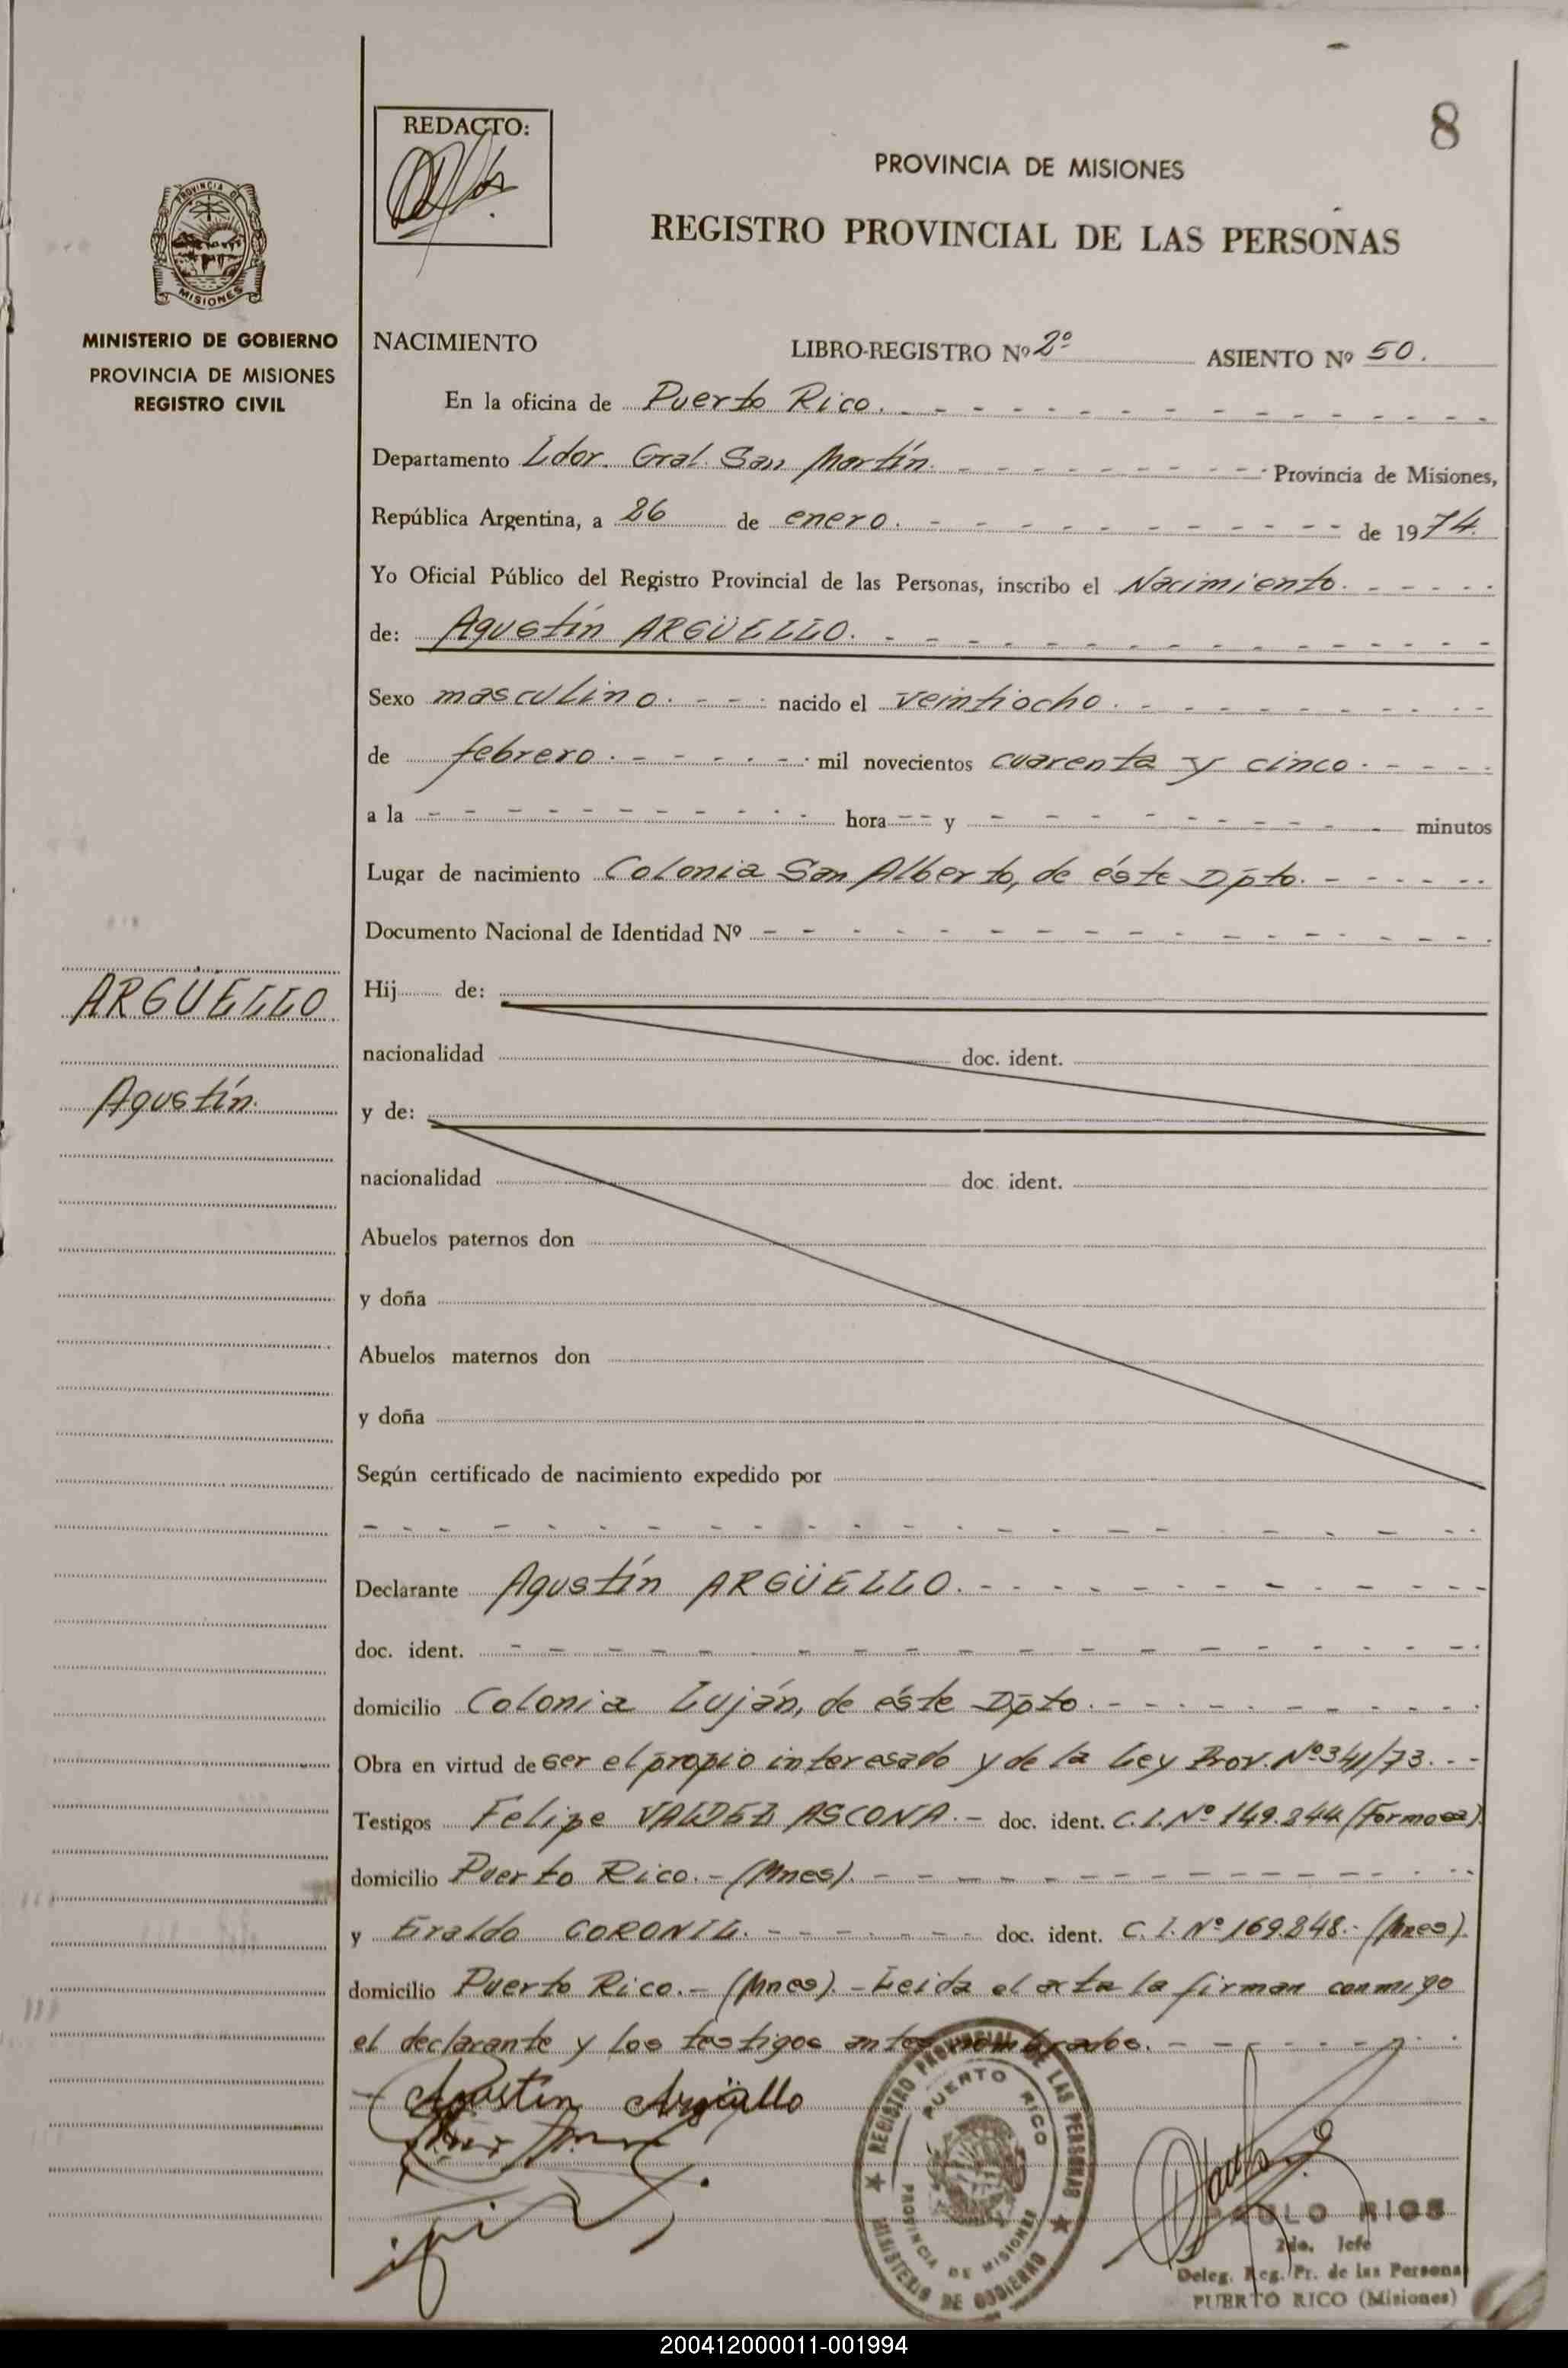 8
REDACTO:
PROVINCIA DE MISIONES
REGISTRO PROVINCIAL DE LAS PERSONAS
PROVINCIA DE
MISIONES
MINISTERIO DE GOBIERNO
PROVINCIA DE MISIONES
REGISTRO CIVIL
NACIMIENTO LIBRO-REGISTRO Nº 2º ASIENTO Nº 50.
En la oficina de Puerto Rico.
Departamento Ldor. Gral. San Martín. Provincia de Misiones,
República Argentina, a 26 de enero. de 1974.
Yo Oficial Público del Registro Provincial de las Personas, inscribo el Nacimiento.
de: Agustín ARGÜELLO.
Sexo masculino. nacido el veintiocho.
de febrero. mil novecientos cuarenta y cinco.
a la hora y minutos
Lugar de nacimiento Colonia San Alberto, de éste Dpto.
Documento Nacional de Identidad Nº
ARGÜELLO
Agustín.
Hij de:
nacionalidad doc. ident.
y de:
nacionalidad doc. ident.
Abuelos paternos don
y doña
Abuelos maternos don
y doña
Según certificado de nacimiento expedido por
Declarante Agustín ARGÜELLO.
doc. ident.
domicilio Colonia Luján, de éste Dpto.
Obra en virtud de ser el propio interesado y de la Ley Prov. Nº 341/73.
Testigos Felipe VALDEZ ASCONA.- doc. ident. C.I. Nº 149.244 (Formosa)
domicilio Puerto Rico.-(Mnes).
y Eraldo CORONIL. doc. ident. C.I. Nº 169.848.- (Mnes).
domicilio Puerto Rico.- (Mnes).- Leída el acta la firman conmigo
el declarante y los testigos antes nombrados.
Agustin Argüello
REGISTRO PROVINCIAL DE LAS PERSONAS
PUERTO RICO
PROVINCIA DE MISIONES
MINISTERIO DE GOBIERNO
PABLO RIOS
2do. Jefe
Deleg. Reg. Pr. de las Persona
PUERTO RICO (Misiones)
200412000011-001994